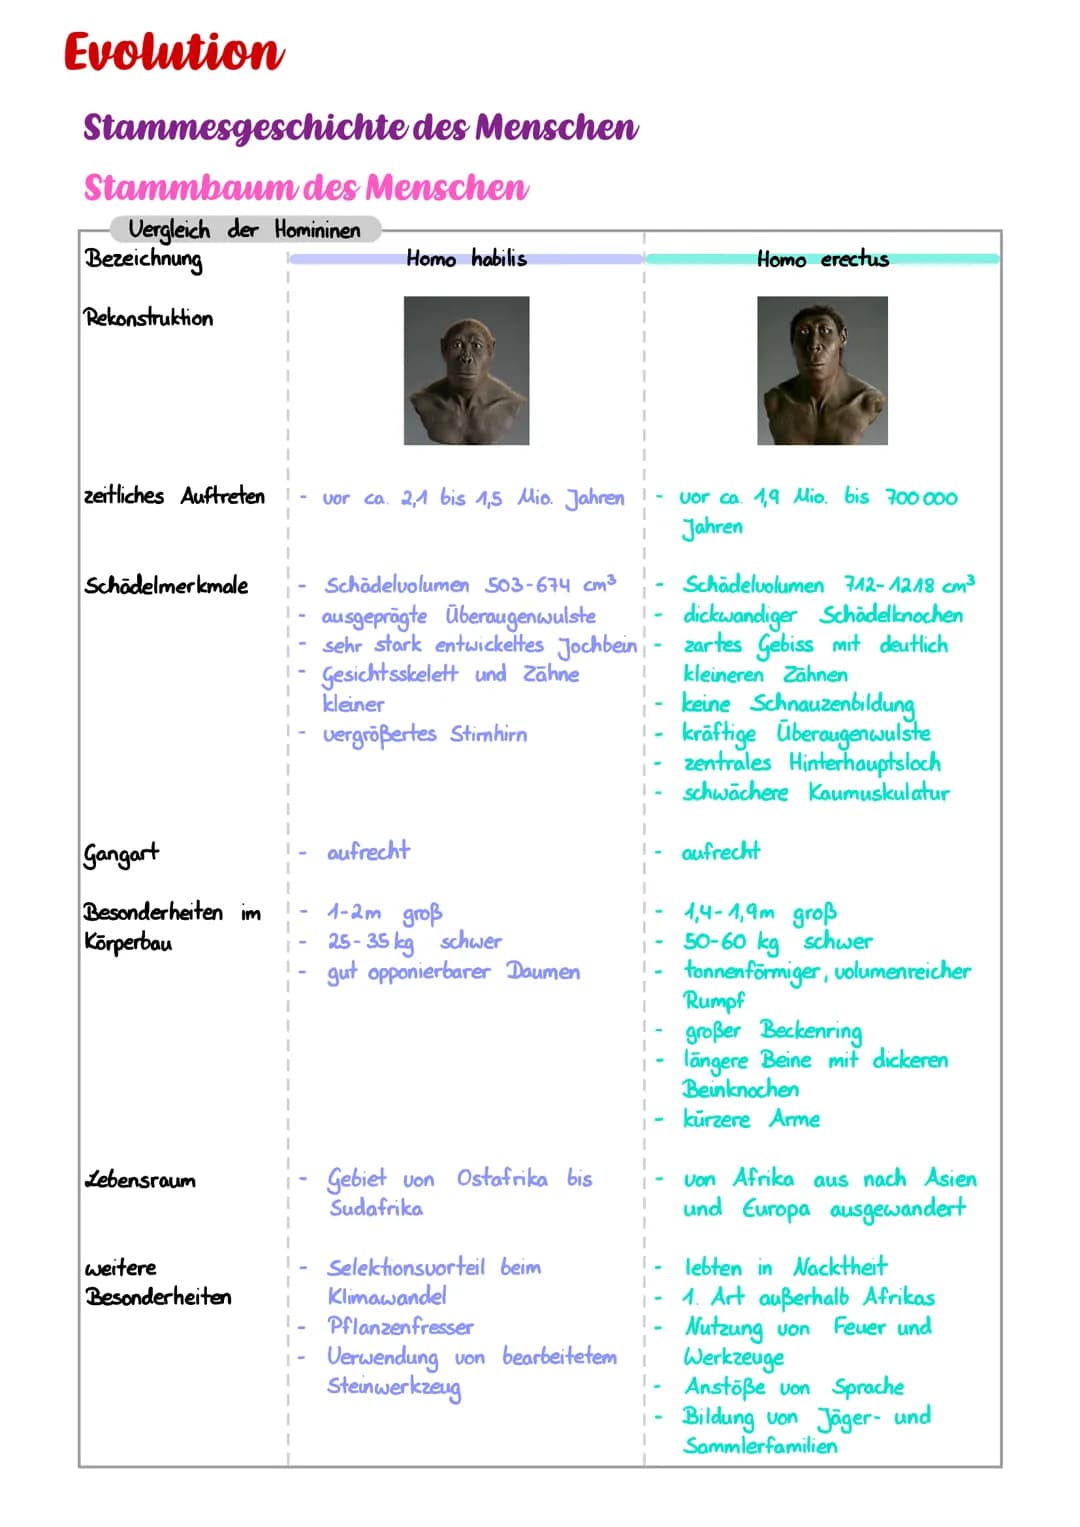 Evolution
Stammesgeschichte des Menschen
Stammbaum des Menschen
Vergleich der Homininen
Bezeichnung
Homo habilis
Homo erectus
Rekonstruktion
zeitliches Auftreten
- vor ca. 2,1 bis 1,5 Mio. Jahren
- vor ca. 1,9 Mio. bis 700 000
Jahren
Schädelmerkmale
- Schädelvolumen 503-674 cm³
- ausgeprägte Überaugenwulste
- sehr stark entwickeltes Jochbein
- Gesichtsskelett und Zähne
kleiner
- vergrößertes Stirnhirn
- Schädelvolumen 712-1218 cm³
- dickwandiger Schädelknochen
- zartes Gebiss mit deutlich
kleineren Zähnen
- keine Schnauzenbildung
- kräftige Überaugenwulste
- zentrales Hinterhauptsloch
- schwächere Kaumuskulatur
Gangart
- aufrecht
- aufrecht
Besonderheiten im
Körperbau
- 1-2m groß
- 25-35 kg schwer
- gut opponierbarer Daumen
- 1,4-1,9m groß
- 50-60 kg schwer
- tonnenförmiger, volumenreicher
Rumpf
- großer Beckenring
- längere Beine mit dickeren
Beinknochen
- kürzere Arme
Lebensraum
- Gebiet von Ostafrika bis
Sudafrika
- von Afrika aus nach Asien
und Europa ausgewandert
weitere
Besonderheiten
- Selektionsvorteil beim
Klimawandel
- Pflanzenfresser
- Verwendung von bearbeitetem
Steinwerkzeug
- lebten in Nacktheit
- 1. Art außerhalb Afrikas
- Nutzung von Feuer und
Werkzeuge
- Anstöße von Sprache
- Bildung von Jäger- und
Sammlerfamilien